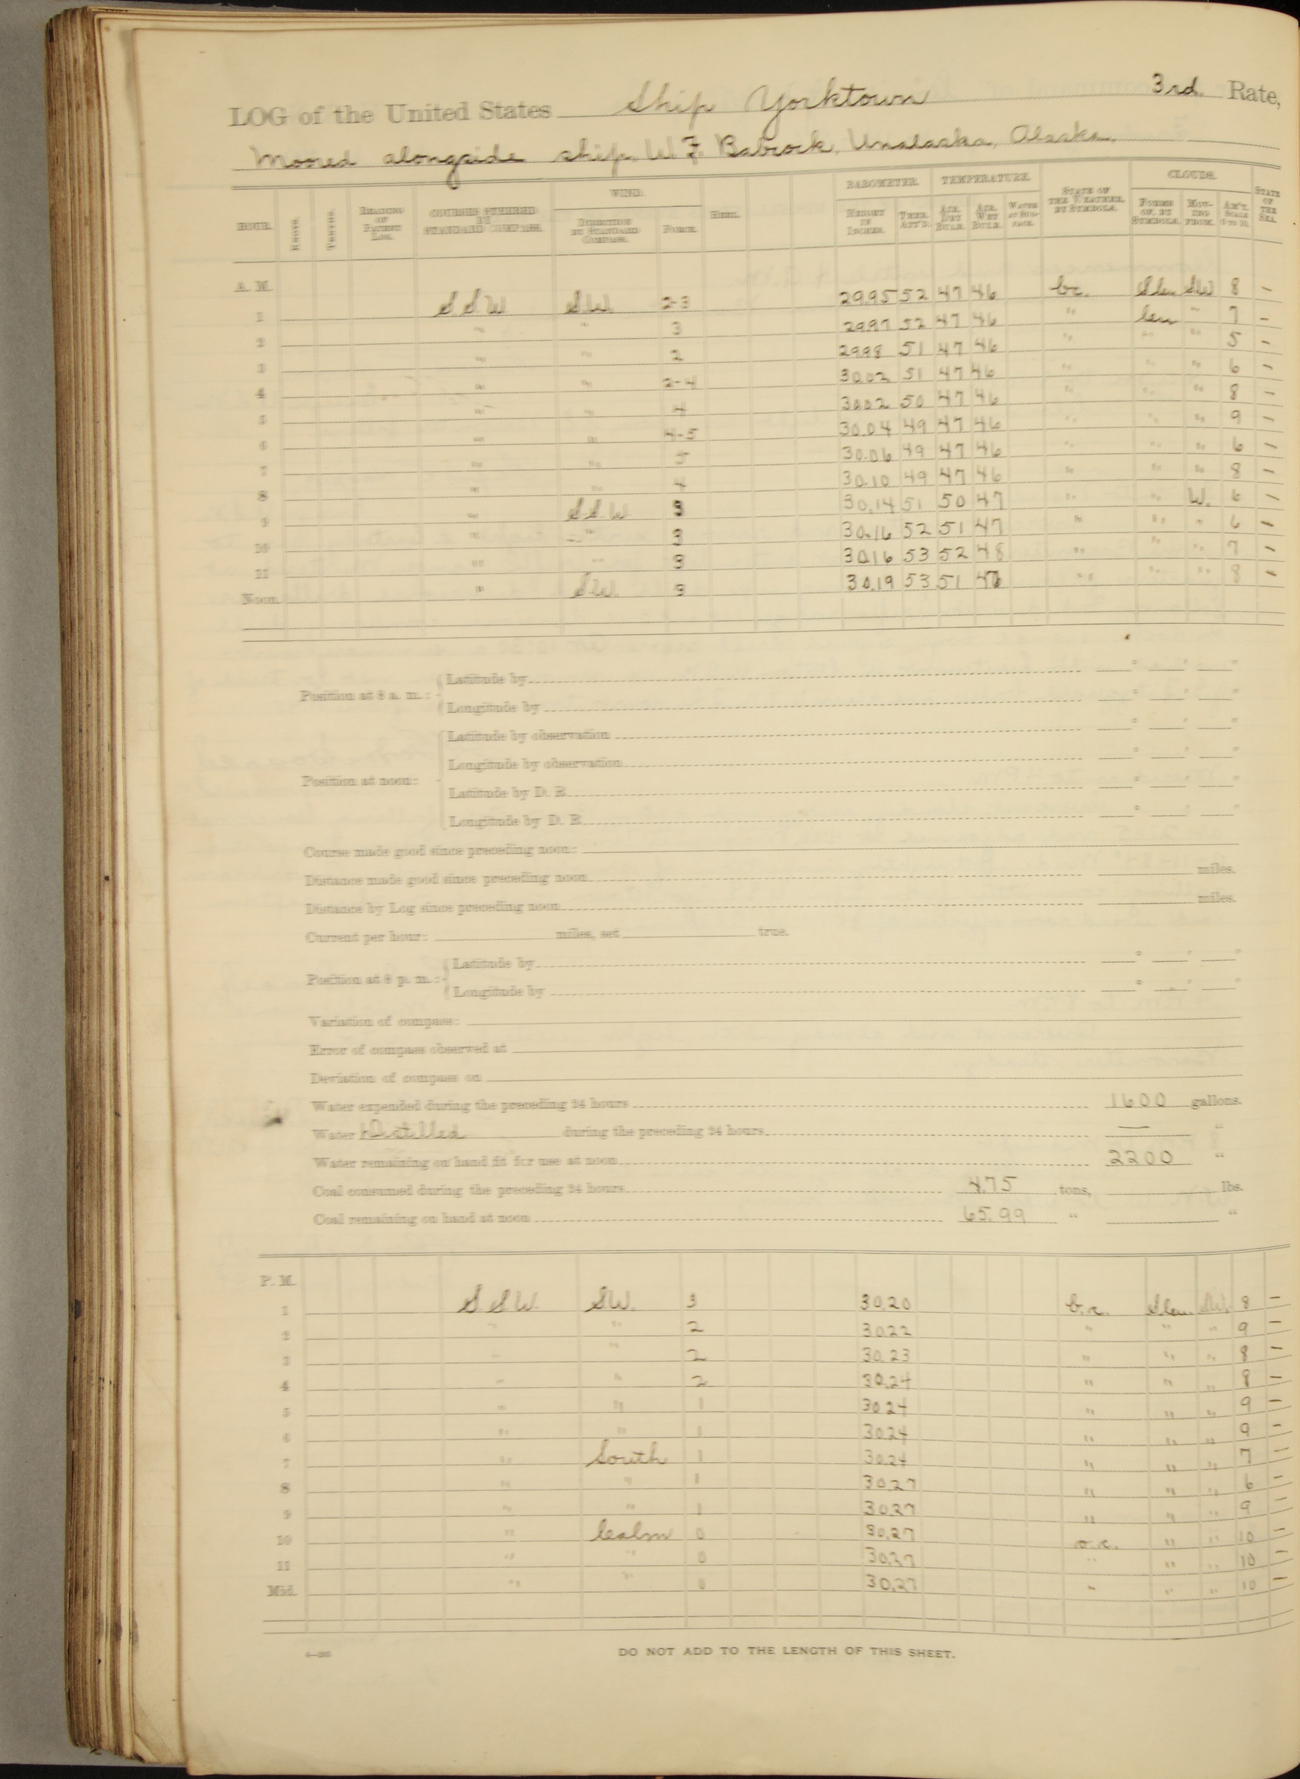 LOG of the United States Ship Yorktown 3rd. Rate,
Moored alongside ship W. F. Babcock, Unalaska, Alaska.
HOUR. KNOTS. TENTHS. READING OF PATENT LOG. COURSES STEERED BY STANDARD COMPASS. WIND. DIRECTION BY STANDARD COMPASS. FORCE. HEEL. BAROMETER. HEIGHT IN INCHES. THER. ATT'D. TEMPERATURE. AIR, DRY BULB. AIR, WET BULB. WATER AT SURFACE. STATE OF THE WEATHER, BY SYMBOLS. CLOUDS. FORMS OF, BY SYMBOLS. MOVING FROM. AM'T. SCALE 0 TO 10. STATE OF THE SEA.
A. M.
1 S S W S.W. 2-3 29.95 52 47 46 b.c. S.Cu. SW 8 –
2 " " 3 29.97 52 47 46 " Cu " 7 –
3 " " 2 29.98 51 47 46 " " " 5 –
4 " " 2-4 30.02 51 47 46 " " " 6 –
5 " " 4 30.02 50 47 46 " " " 8 –
6 " " 4-5 30.04 49 47 46 " " " 9 –
7 " " 5 30.06 49 47 46 " " " 6 –
8 " " 4 30.10 49 47 46 " " " 8 –
9 " S S W 3 30.14 51 50 47 " " W. 6 –
10 " " 3 30.16 52 51 47 " " " 6 –
11 " " 3 30.16 53 52 48 " " " 7 –
Noon. " SW. 3 30.19 53 51 " " " 8 –
Position at 8 a. m.: Latitude by ° ' "
Longitude by ° ' "
Position at noon: Latitude by observation ° ' "
Longitude by observation ° ' "
Latitude by D. R. ° ' "
Longitude by D. R. ° ' "
Course made good since preceding noon:
Distance made good since preceding noon miles.
Distance by Log since preceding noon miles.
Current per hour: miles, set true.
Position at 8 p. m.: Latitude by ° ' "
Longitude by ° ' "
Variation of compass:
Error of compass observed at
Deviation of compass on
Water expended during the preceding 24 hours 1600 gallons.
Water Distilled during the preceding 24 hours — "
Water remaining on hand fit for use at noon 2200 "
Coal consumed during the preceding 24 hours 4.75 tons, lbs.
Coal remaining on hand at noon 65.99 " "
P. M.
1 S S W. SW. 3 30.20 b.c. S.Cu. SW. 8 –
2 " " 2 30.22 " " " 9 –
3 " " 2 30.23 " " " 8 –
4 " " 2 30.24 " " " 8 –
5 " " 1 30.24 " " " 9 –
6 " " 1 30.24 " " " 9 –
7 " South 1 30.24 " " " 7 –
8 " " 1 30.27 " " " 6 –
9 " " 1 30.27 " " " 9 –
10 " Calm 0 30.27 o.c. " " 10 –
11 " " 0 30.27 " " " 10 –
Mid. " " 0 30.27 " " " 10 –
DO NOT ADD TO THE LENGTH OF THIS SHEET.